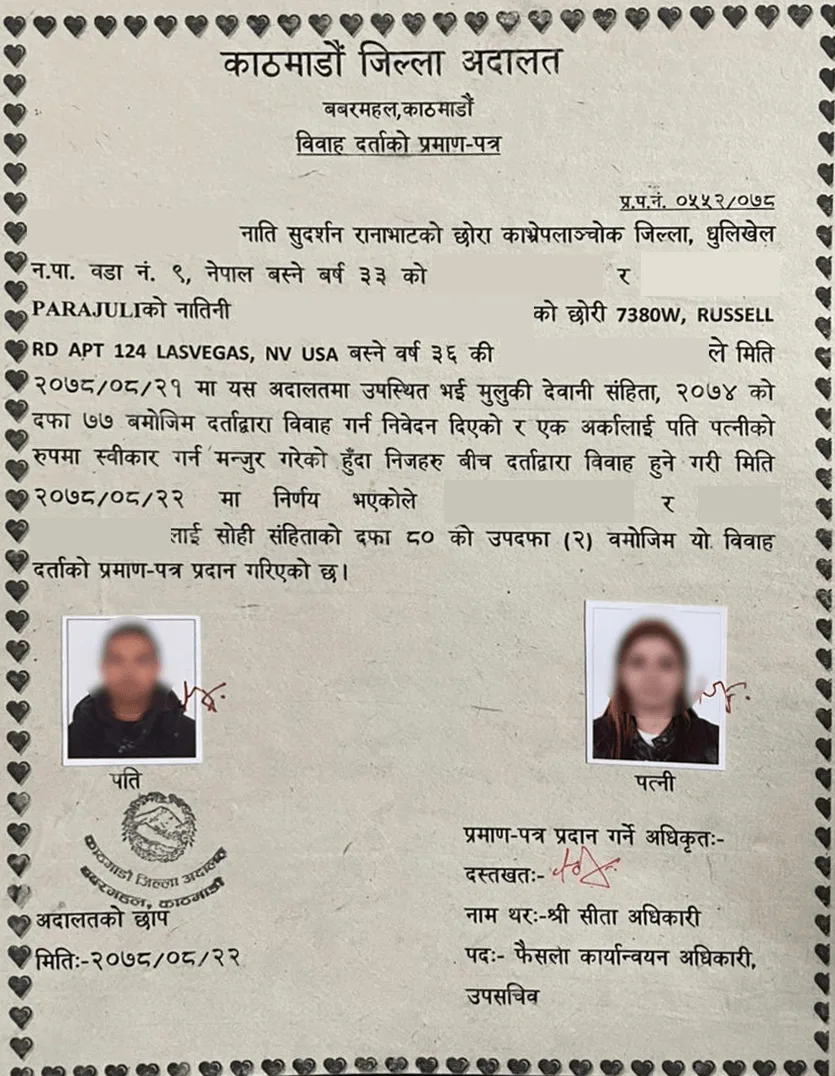 काठमाडौं जिल्ला अदालत
बबरमहल,काठमाडौं
विवाह दर्ताको प्रमाण-पत्र
प्र.प.नं. ०५५२/०७८
नाति सुदर्शन रानाभाटको छोरा काभ्रेपलाञ्चोक जिल्ला, धुलिखेल
न.पा. वडा नं. ९, नेपाल बस्ने बर्ष ३३ को र
PARAJULIको नातिनी को छोरी 7380W, RUSSELL
RD APT 124 LASVEGAS, NV USA बस्ने वर्ष ३६ की ले मिति
२०७८/०८/२१ मा यस अदालतमा उपस्थित भई मुलुकी देवानी संहिता, २०७४ को
दफा ७७ बमोजिम दर्ताद्वारा विवाह गर्न निवेदन दिएको र एक अर्कालाई पति पत्नीको
रुपमा स्वीकार गर्न मन्जुर गरेको हुँदा निजहरु बीच दर्ताद्वारा विवाह हुने गरी मिति
२०७८/०८/२२ मा निर्णय भएकोले र
लाई सोही संहिताको दफा ८० को उपदफा (२) वमोजिम यो विवाह
दर्ताको प्रमाण-पत्र प्रदान गरिएको छ।
पति
पत्नी
काठमाडौं जिल्ला अदालत
बबरमहल, काठमाडौं
अदालतको छाप
मितिः-२०७८/०८/२२
प्रमाण-पत्र प्रदान गर्ने अधिकृतः-
दस्तखतः-
नाम थरः-श्री सीता अधिकारी
पदः- फैसला कार्यान्वयन अधिकारी,
उपसचिव